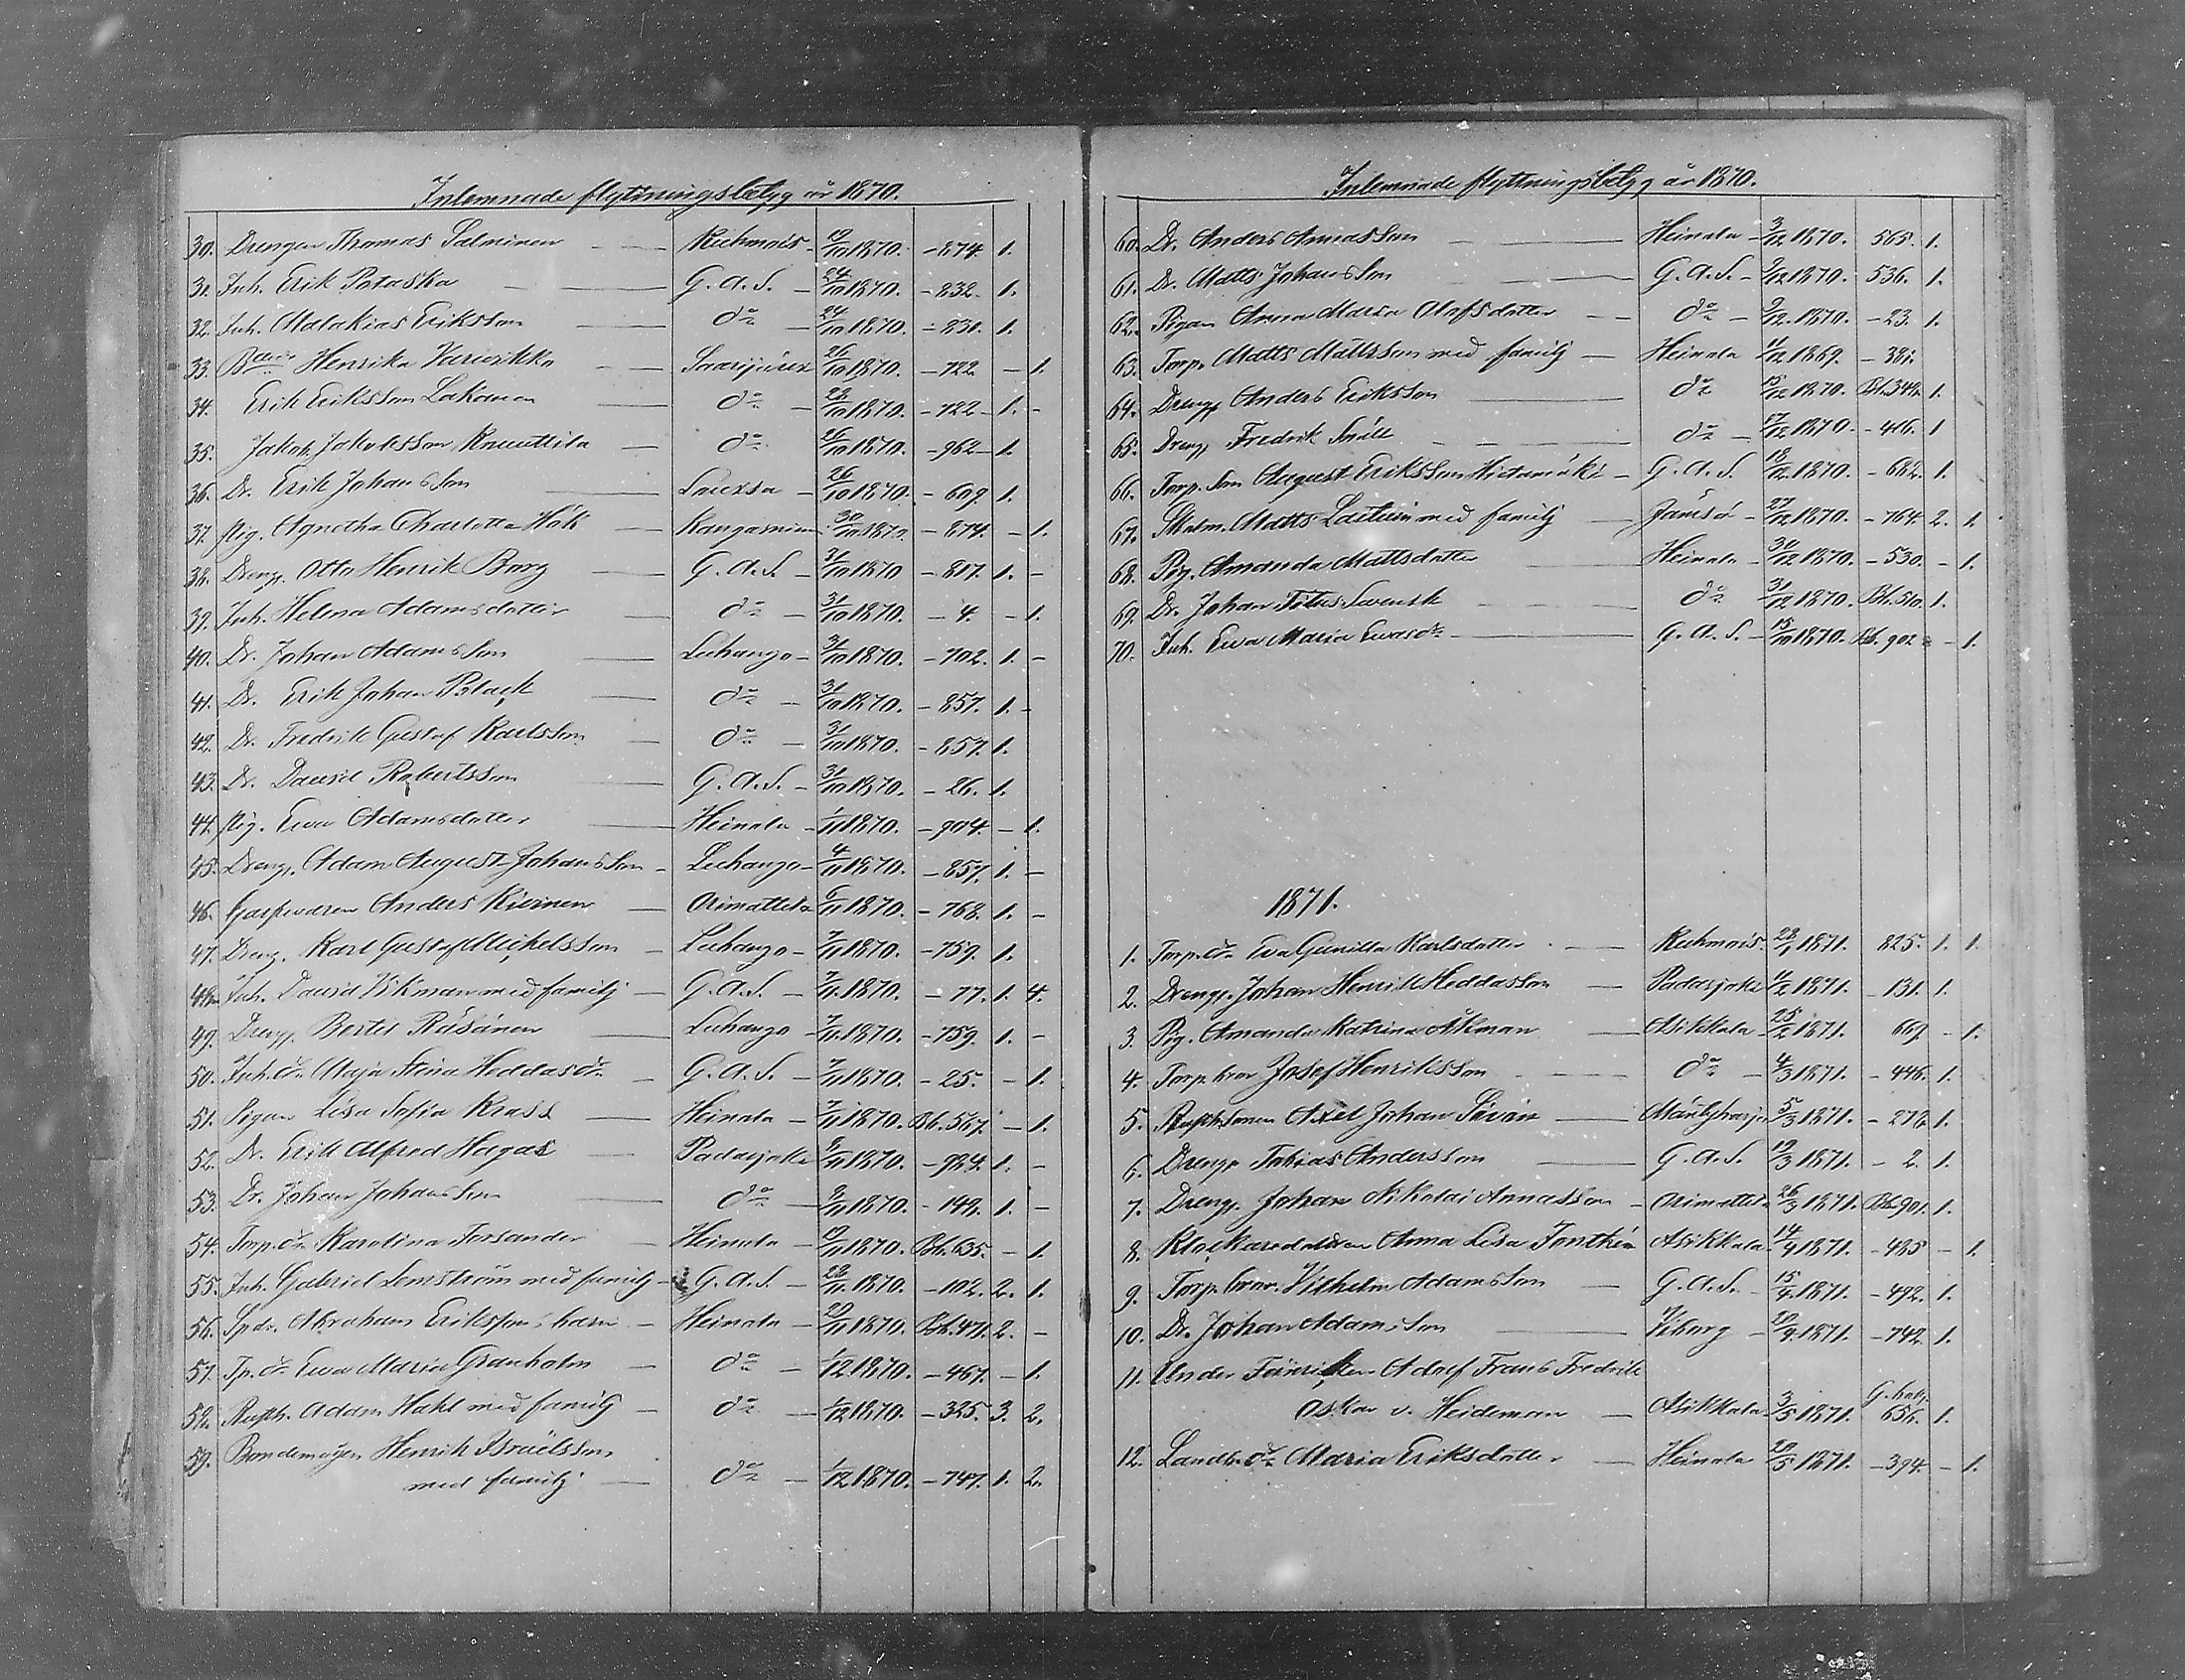 Inlemnade flyttningsbetyg år 1870.
30. Drengen Thomas Salminen — Kuhmois 19/10 1870. – 874. 1.
31. Inh. Erik Pataska — G.A.S. 24/10 1870. – 832. 1.
32. Inh. Malakias Eriksson — do 24/10 1870. – 831. 1.
33. Henrika — Saarijärvi 26/10 1870. – 722. – 1.
34. Erik Eriksson Lakanen — do 1870. – 722 – 1. –
35. Jakob Jakobsson Knuuttila — do 26/10 1870. – 962 – 1.
36. Dr. Erik Johansson — 26/10 1870. – 609. 1.
37. Pig. Agnetha Charlotta Hök — Kangasniemi 30/10 1870. – 874. – 1.
38. Dreng. Otto Henrik Borg — G.A.S. – 31/10 1870 – 817. 1. –
39. Inh. Helena Adamsdotter — do – 31/10 1870. – 4. – 1.
40. Dr. Johan Adamsson — Luhango – 31/10 1870. – 702. 1. –
41. Dr. Erik Johan Black — do – 31/10 1870. – 857. 1. –
42. Dr. Fredrik Gustaf Karlsson — do – 31/10 1870. – 857. 1.
43. Dr. David Robertsson — G.A.S. – 31/10 1870. – 26. 1.
44. Pig. Ewa Adamsdotter — Heinola – 1/11 1870. – 904. – 1.
45. Dreng. Adam August Johansson – Luhango – 4/11 1870. – 857. 1. –
46. Anders Kivinen — Orimattila 6/11 1870. – 768. 1. –
47. Dreng. Karl Gustaf Mickelsson – Luhango – 7/11 1870. – 759. 1.
48. Inh. David Vikman med familj – G.A.S. – 7/11 1870. – 77. 1. 4.
49. Dreng. Bertil Räsänen — Luhango – 7/11 1870. – 759. 1. –
50. Inh. dr. Maja Stina Heddasdr. – G.A.S. – 7/11 1870. – 25. – 1.
51. Pigan Lisa Sofia Krass — Heinola – 7/11 1870. Bb. 567. – 1.
52. Dr. Erik Alfred Hagax — Padasjoki 9/11 1870. – 924. 1. –
53. Dr. Johan Johansson — do – 9/11 1870. – 149. 1. –
54. Torp. dr. Karolina Forsander – Heinola – 19/11 1870. Bb. 635. – 1.
55. Inh. Gabriel Lemström med familj – G.A.S. – 28/11 1870. – 102. 2. 1.
56. Abraham Erikssons barn – Heinola – 29/11 1870. Bb. 471. 2. –
57. Tp. dr. Ewa Maria Granholm – do – 1/12 1870. – 467. – 1.
58. Rusth. Adam Hahl med familj – do – 1/12 1870. – 325. 3. 2.
59. Bondemågen Henrik Israëlsson
med familj — do – 1/12 1870. – 747. 1. 2.
Inlemnade flyttningsbetyg år 1870.
60. Dr. Anders Annasson — Heinola – 3/12 1870. 565. 1.
61. Dr. Matts Johansson — G.A.S. – 9/12 1870. 536. 1.
62. Pigan Anna Maria Olofsdotter — do – 9/12 1870. – 23. 1.
63. Torp. Matts Mattsson med familj — Heinola 11/12 1869. – 381.
64. Dreng Anders Eriksson — do 15/12 1870. Bb. 349. 1.
65. Dreng Fredrik Snäll — do – 17/12 1870. – 416. 1
66. Torp. son August Eriksson Hietamäki – G.A.S. 18/12 1870. – 682. 1.
67. Matts med familj — Jämsä – 27/12 1870. – 764. 2. 1.
68. Pig. Amanda Mattsdotter — Heinola – 30/12 1870. – 530. – 1.
69. Dr. Johan Titus Svensk — do 31/12 1870. Bb. 510. 1.
70. Inh. Ewa Maria Ewasdr — G.A.S. – 15/10 1870. Bb. 902 – 1.
1871.
1. Torp. dr. Eva Gunilla Karlsdotter — Kuhmois 28/1 1871. 825. 1. 1.
2. Dreng. Johan Henrik Heddasson — Padasjoki 11/2 1871. – 131. 1.
3. Pig. Amanda Katrina Åkman — Asikkala 25/2 1871. 669. – 1.
4. Torp. bror Josef Henriksson — do – 4/3 1871. – 446. 1.
5. Rusth. sonen Axel Johan Sävän — Mäntyharju 5/3 1871. – 278. 1.
6. Dreng. Tobias Andersson — G.A.S. 19/3 1871. – 2. 1.
7. Dreng. Johan Nikolai Annasson – Orimattila 26/3 1871. Bb. 901. 1.
8. Klockaredottren Anna Lisa — Asikkala 14/4 1871. – 485 – 1.
9. Torp. bror. Vilhelm Adamsson — G.A.S. – 15/4 1871. – 492. 1.
10. Dr. Johan Adamsson — Viborg – 1871. – 742. 1.
11. Under Adolf Frans Fredrik
Oskar v. Heideman — Asikkala 3/5 1871. 656. 1.
12. Landb. dr. Maria Eriksdotter — Heinola 20/5 1871. – 394. – 1.